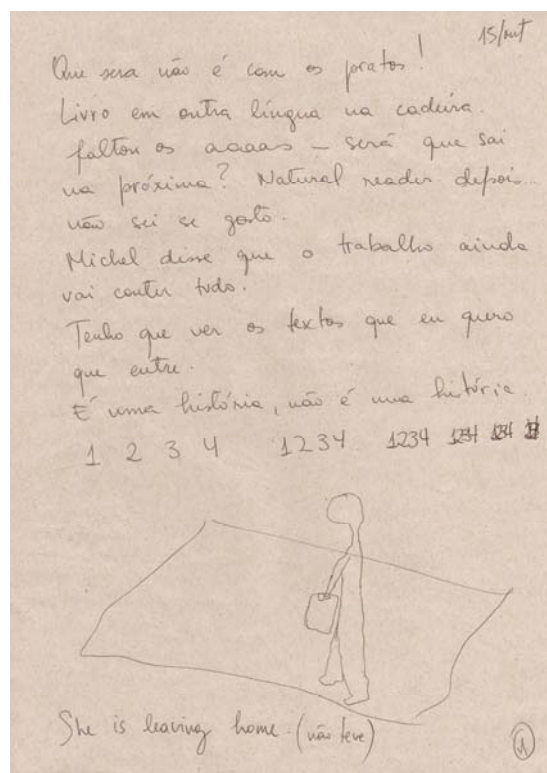 15/out
Que sera não é com os pratos!
Livro em outra língua na cadeira.
faltou os aaaas – será que sai
na próxima? Natural reader depois...
não sei se gosto.
Michel disse que o trabalho ainda
vai conter tudo.
Tenho que ver os textos que eu quero
que entre.
É uma história, não é uma história.
1 2 3 4 1234 1234 1234 1234
She is leaving home. (não teve)
1